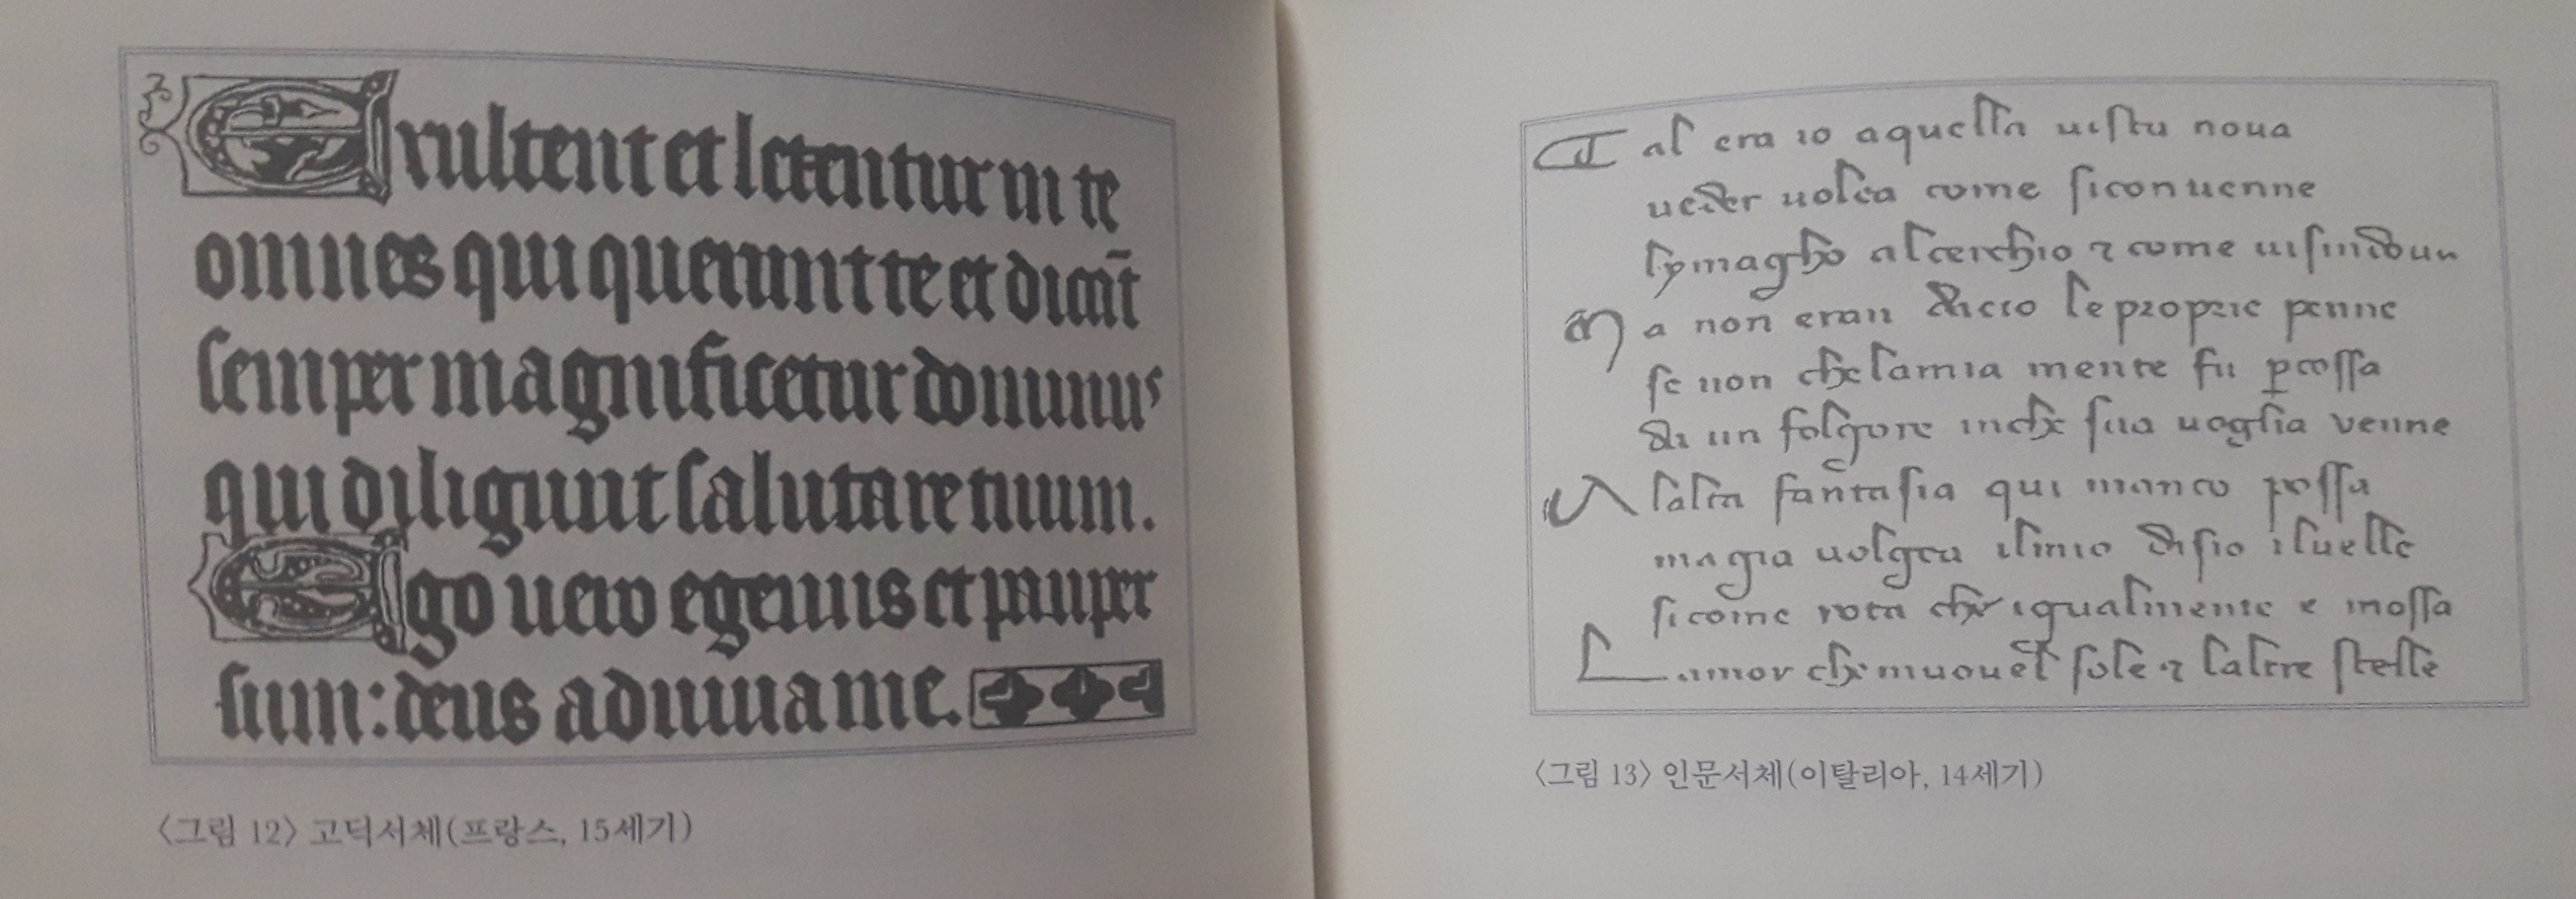 Exultent et letentur in te
omnes qui querunt te et dicāt
semper magnificetur dominus
qui diligunt salutare tuum.
Ego vero egenus et pauper
sum: deus adiuva me.
〈그림 12〉 고딕서체(프랑스, 15세기)
Tal era io a quella uista noua
ueder uolea come si conuenne
lymagho al cerchio 7 come uisindoua
Ma non eran di cio le proprie penne
se non che la mia mente fu pcossa
da un folgore in che sua uoglia venne
A lalta fantasia qui manco possa
ma gia uolgea il mio disio il uelle
si come rota che igualmente e mossa
Lamor che muoue el sole 7 laltre stelle
〈그림 13〉 인문서체(이탈리아, 14세기)